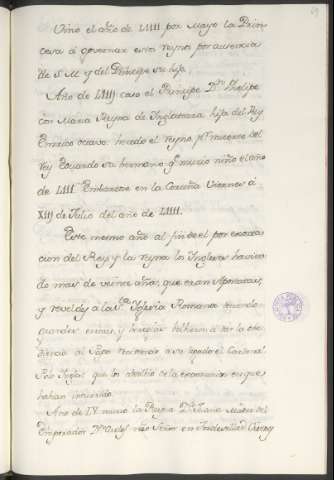 Vino el año de LIIII por Mayo la Prin
cesa á governar estos reynos por ausencia
de S M y del Principe su hijo,
Año de LIIIJ caso el Principe Dn Phelipe
con Maria Reyna de Inglaterra hija del Rey
Enrico octavo heredo el reyno pr muerte del
rey Eduardo su hermano qe murio niño el año
de LIII Embarcose en la Coruña Viernes á
XIII de Julio del año de LIIII.
Este mismo año al fin de el por exorta
cion del Rey y la reyna los Ingleses havien
do mas de veinte años, que eran Apostatas,
y reveldes a la Sta Iglesia Romana
guardar errores, y heregias bolvieron á dar la obe
diencia al Papa
Polo Ingles que los absolvio de la excomunion en que
habian incurrido
Año de LV murio la Reyna Da Juana Madre del
Emperador Dn Carlos nro Señor en Tordesillas